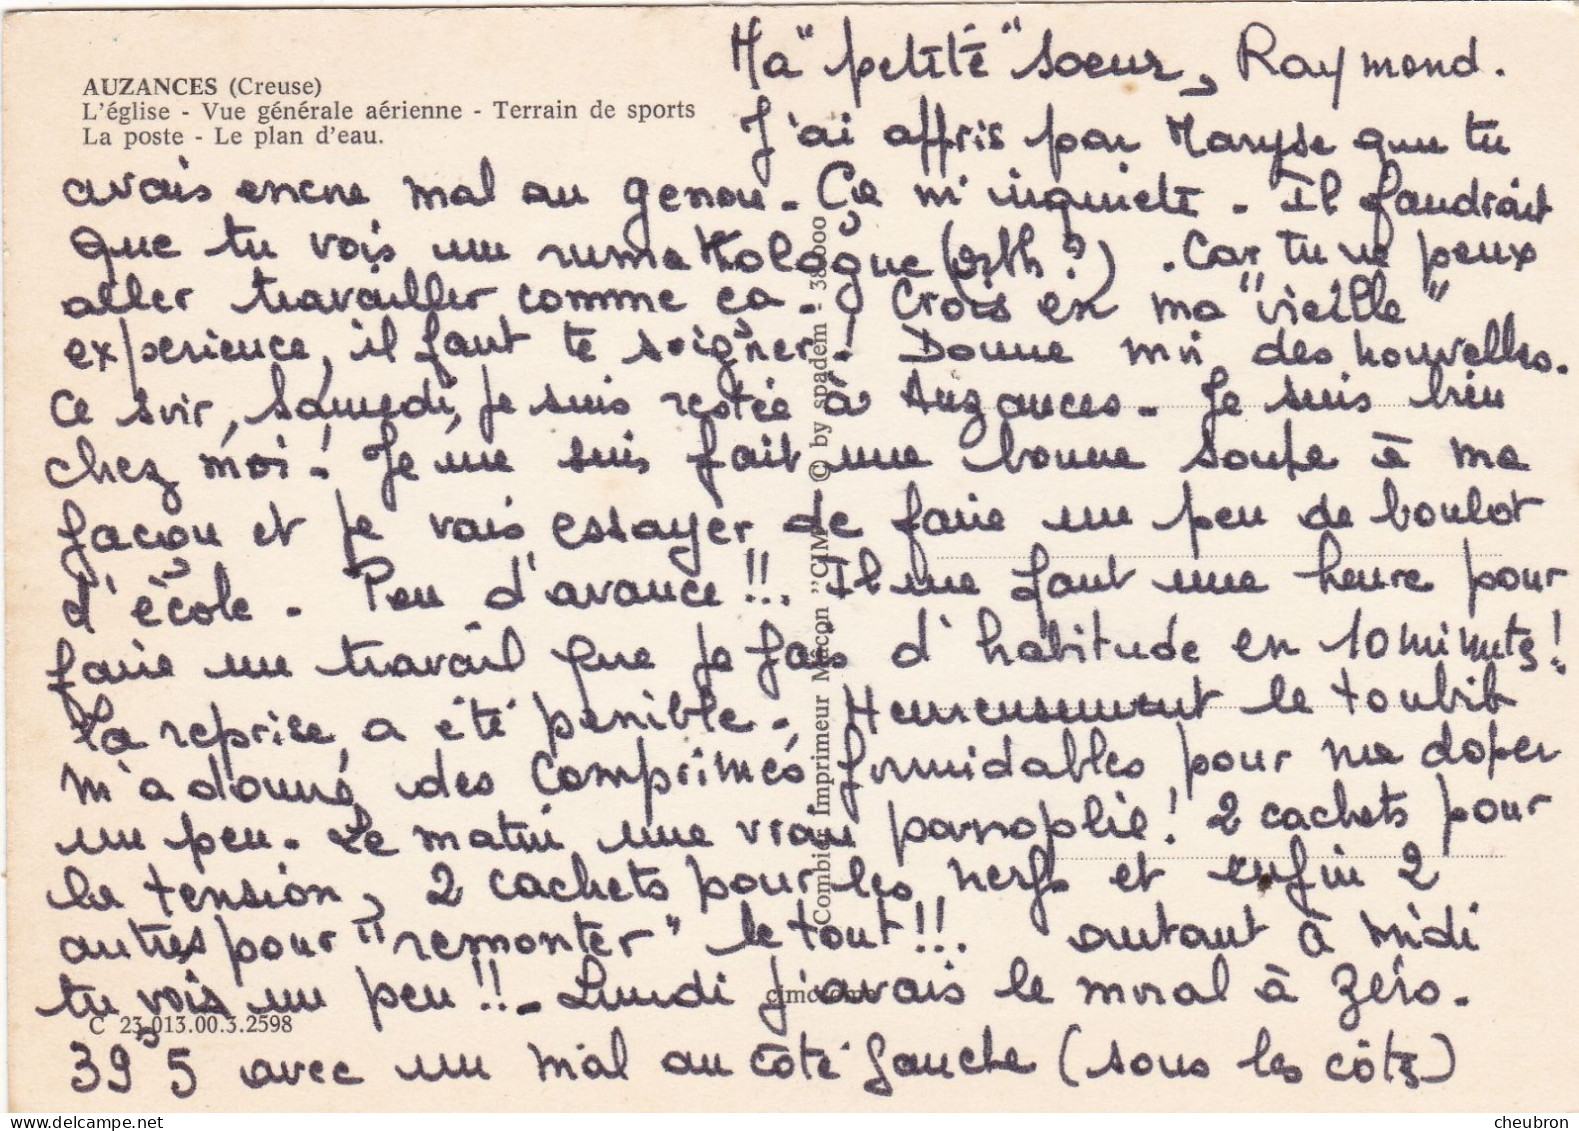 AUZANCES (Creuse)
L'église - Vue générale aérienne - Terrain de sports
La poste - Le plan d'eau.
Ma "petite" soeur, Raymond.
J'ai appris par Maryse que tu
avais encore mal au genou. Ça m'inquiète. Il faudrait
que tu vois un rumathologue (orth?). Car tu ne peux
aller travailler comme ça. Crois en ma "vieille"
expérience, il faut te soigner! Donne moi des nouvelles.
Ce soir, Samedi, je suis restée à Auzances. Je suis bien
chez moi! Je me suis fait une bonne soupe à ma
façon et je vais essayer de faire un peu de boulot
d'école. Peu d'avance!!. Il me faut une heure pour
faire un travail que je fais d'habitude en 10 minutes!
La reprise a été pénible. Heureusement le toubib
m'a donné des comprimés formidables pour me doper
un peu. Le matin une vraie panoplie! 2 cachets pour
la tension, 2 cachets pour les nerfs et enfin 2
autres pour "remonter" le tout!!. autant à midi
tu vois un peu!! - Lundi j'avais le moral à zéro.
39°5 avec un mal au côté gauche (sous les côtes)
C 23.013.00.3.2598
Combier Imprimeur Macon "CIM" © by spadem - 38.000
cimcrome
cheubron